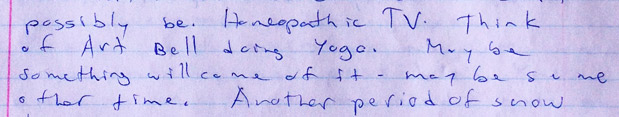 possibly be. Homeopathic TV. Think
of Art Bell doing Yoga. May be
something will come of it - may be some
other time. Another period of snow